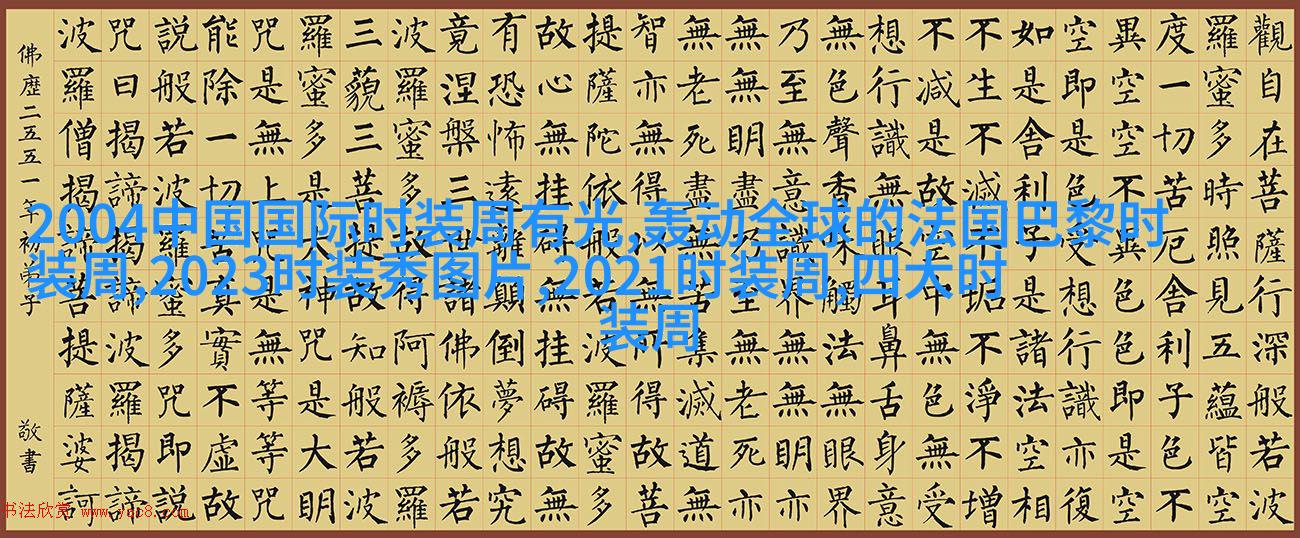 觀自在菩薩行深般若波
羅蜜多時照見五蘊皆空
度一切苦厄舍利子色不
異空空不異色色即是空
空即是色受想行識亦復
如是舍利子是諸法空相
不生不滅不垢不淨不增
不減是故空中無色無受
想行識無眼耳鼻舌身意
無色聲香味觸法無眼界
乃至無意識界無無明亦
無無明盡乃至無老死亦
無老死盡無苦集滅道無
智亦無得以無所得故菩
提薩陀依般若波羅蜜多
故心無挂碍無挂碍故無
有恐怖遠離顛倒夢想究
竟涅槃三世諸佛依般若
波羅蜜多故得阿褥多羅
三藐三菩提故知般若波
羅蜜多是大神咒是大明
咒是無上咒是無等等咒
能除一切苦真實不虛故
説般若波羅蜜多咒即説
咒曰揭諦揭諦波羅揭諦
波羅僧揭諦菩提薩婆訶
佛歷二五五一年初弟子
敬書
2004中国国际时装周有光,轰动全球的法国巴黎时
装周,2023时装秀图片,2021时装周,四大时
装周
书法欣赏 www.yac8.com